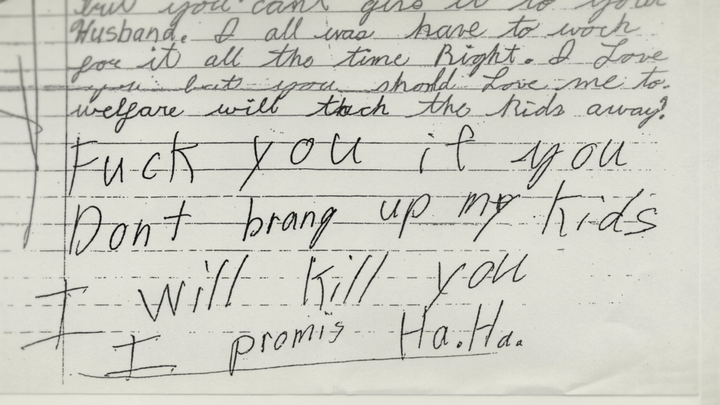 but you cant give it to your
Husband. I all was have to woch
for it all the time Right. I Love
you but you should Love me to.
welfare will thch the kids away?
Fuck you if you
Dont brang up my kids
I will kill you
I promis Ha.Ha.